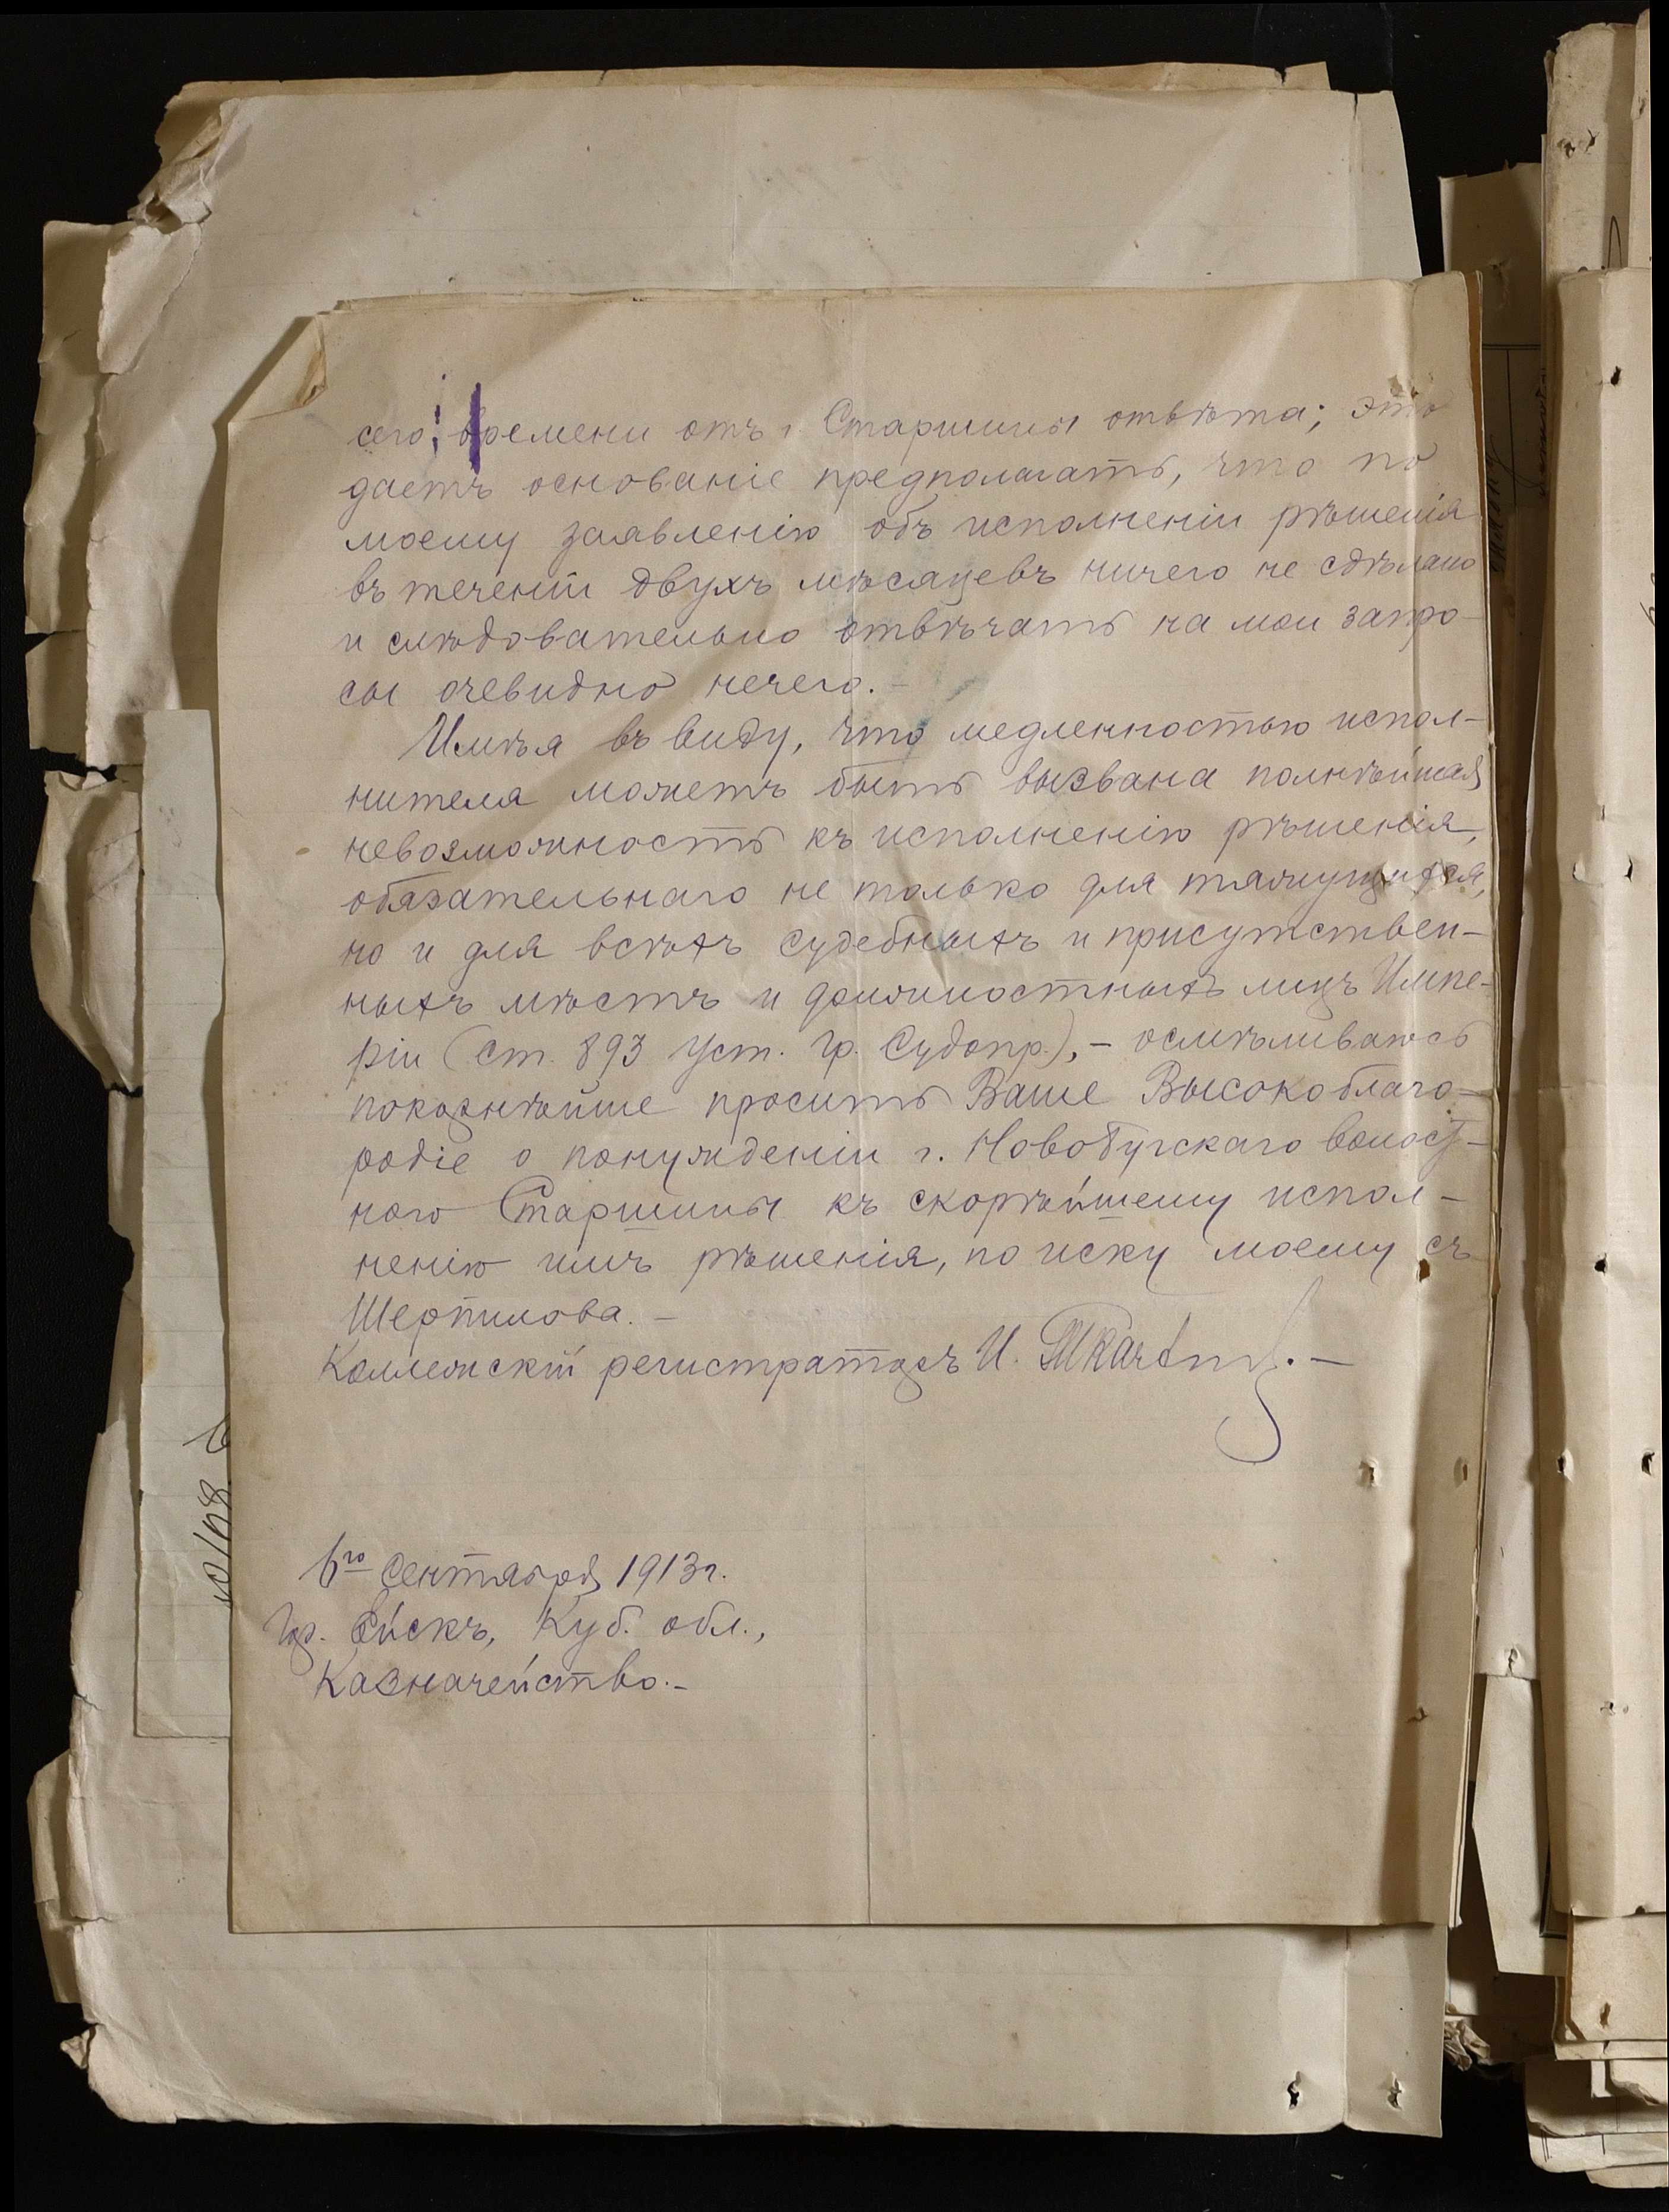 сего времени отъ г. Старшины отвѣта; это
даетъ основаніе предполагать, что по
моему заявленію объ исполненіи рѣшенія
въ теченіи двухъ мѣсяцевъ ничего не сдѣлано
и слѣдовательно отвѣчать на мои запро-
сы очевидно нечего. -
Имѣя въ виду, что медленностью испол-
нителя можетъ быть вызвана полнѣйшая
невозможность къ исполненію рѣшенія,
обязательнаго не только для тяжущихся,
но и для всѣхъ судебныхъ и присутствен-
ныхъ мѣстъ и должностныхъ лицъ Импе-
ріи (ст. 893 Уст. Гр. Судопр.), - осмѣливаюсь
покорнѣйше просить Ваше Высокоблаго-
родіе о понужденіи г. Новобугскаго волост-
ного Старшины къ скорѣйшему испол-
ненію имъ рѣшенія, по иску моему съ
Шерпилова. -
Коллежскій регистраторъ И.
6го Сентября 1913 г.
Гор. Ейскъ, Куб. обл.,
Казначейство. -